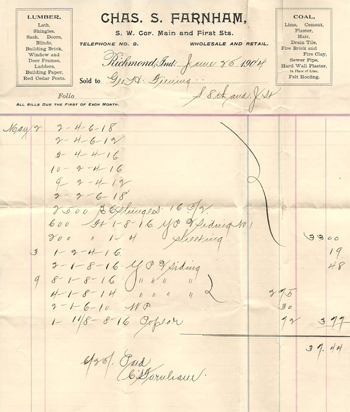 LUMBER,
Lath,
Shingles,
Sash, Doors,
Blinds,
Building Brick,
Window and
Door Frames,
Ladders,
Building Paper,
Red Cedar Posts.
CHAS. S. FARNHAM,
S. W. Cor. Main and First Sts.
TELEPHONE NO. 8. WHOLESALE AND RETAIL.
COAL,
Lime, Cement,
Plaster,
Hair,
Drain Tile,
Fire Brick and
Fire Clay,
Sewer Pipe,
Hard Wall Plaster,
In Place of Lime,
Felt Roofing.
Richmond, Ind. June 26 1904
Sold to Geo. H.
Folio
ALL BILLS DUE THE FIRST OF EACH MONTH.
May 2 2-4-6-18
2-4-6-12
2-4-4-16
10-2-4-16
9 2-4-12
2-2-6-18
2500 Shingles 16
600 ft 1-8-16 Y P Siding No 1
200 " 1-4 Sheeting 3300
3 1-2-4-16 19
2-1-8-16 Y P Siding 48
9 8-1-8-16 " " "
4-1-8-14 " " " 275
2-1-6-10 W P 30
1-8-16 Poplar 72 377
37.44
6/26/ Paid